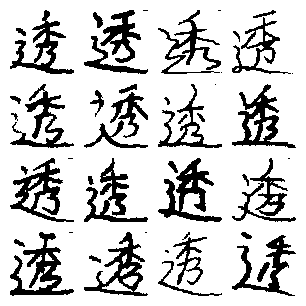 透透透透
透透透透
透透透透
透透透透